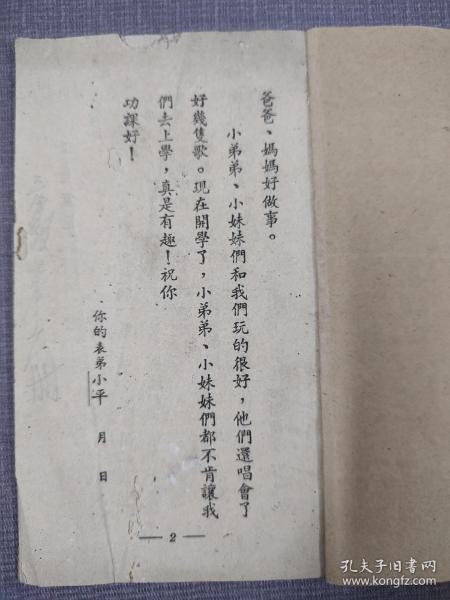 爸爸、媽媽好做事。
小弟弟、小妹妹們和我們玩的很好，他們還唱會了
好幾隻歌。現在開學了，小弟弟、小妹妹們都不肯讓我
們去上學，真是有趣！祝你
功課好！
你的表弟小平 月 日
— 2 —
孔夫子旧书网
www.kongfz.com